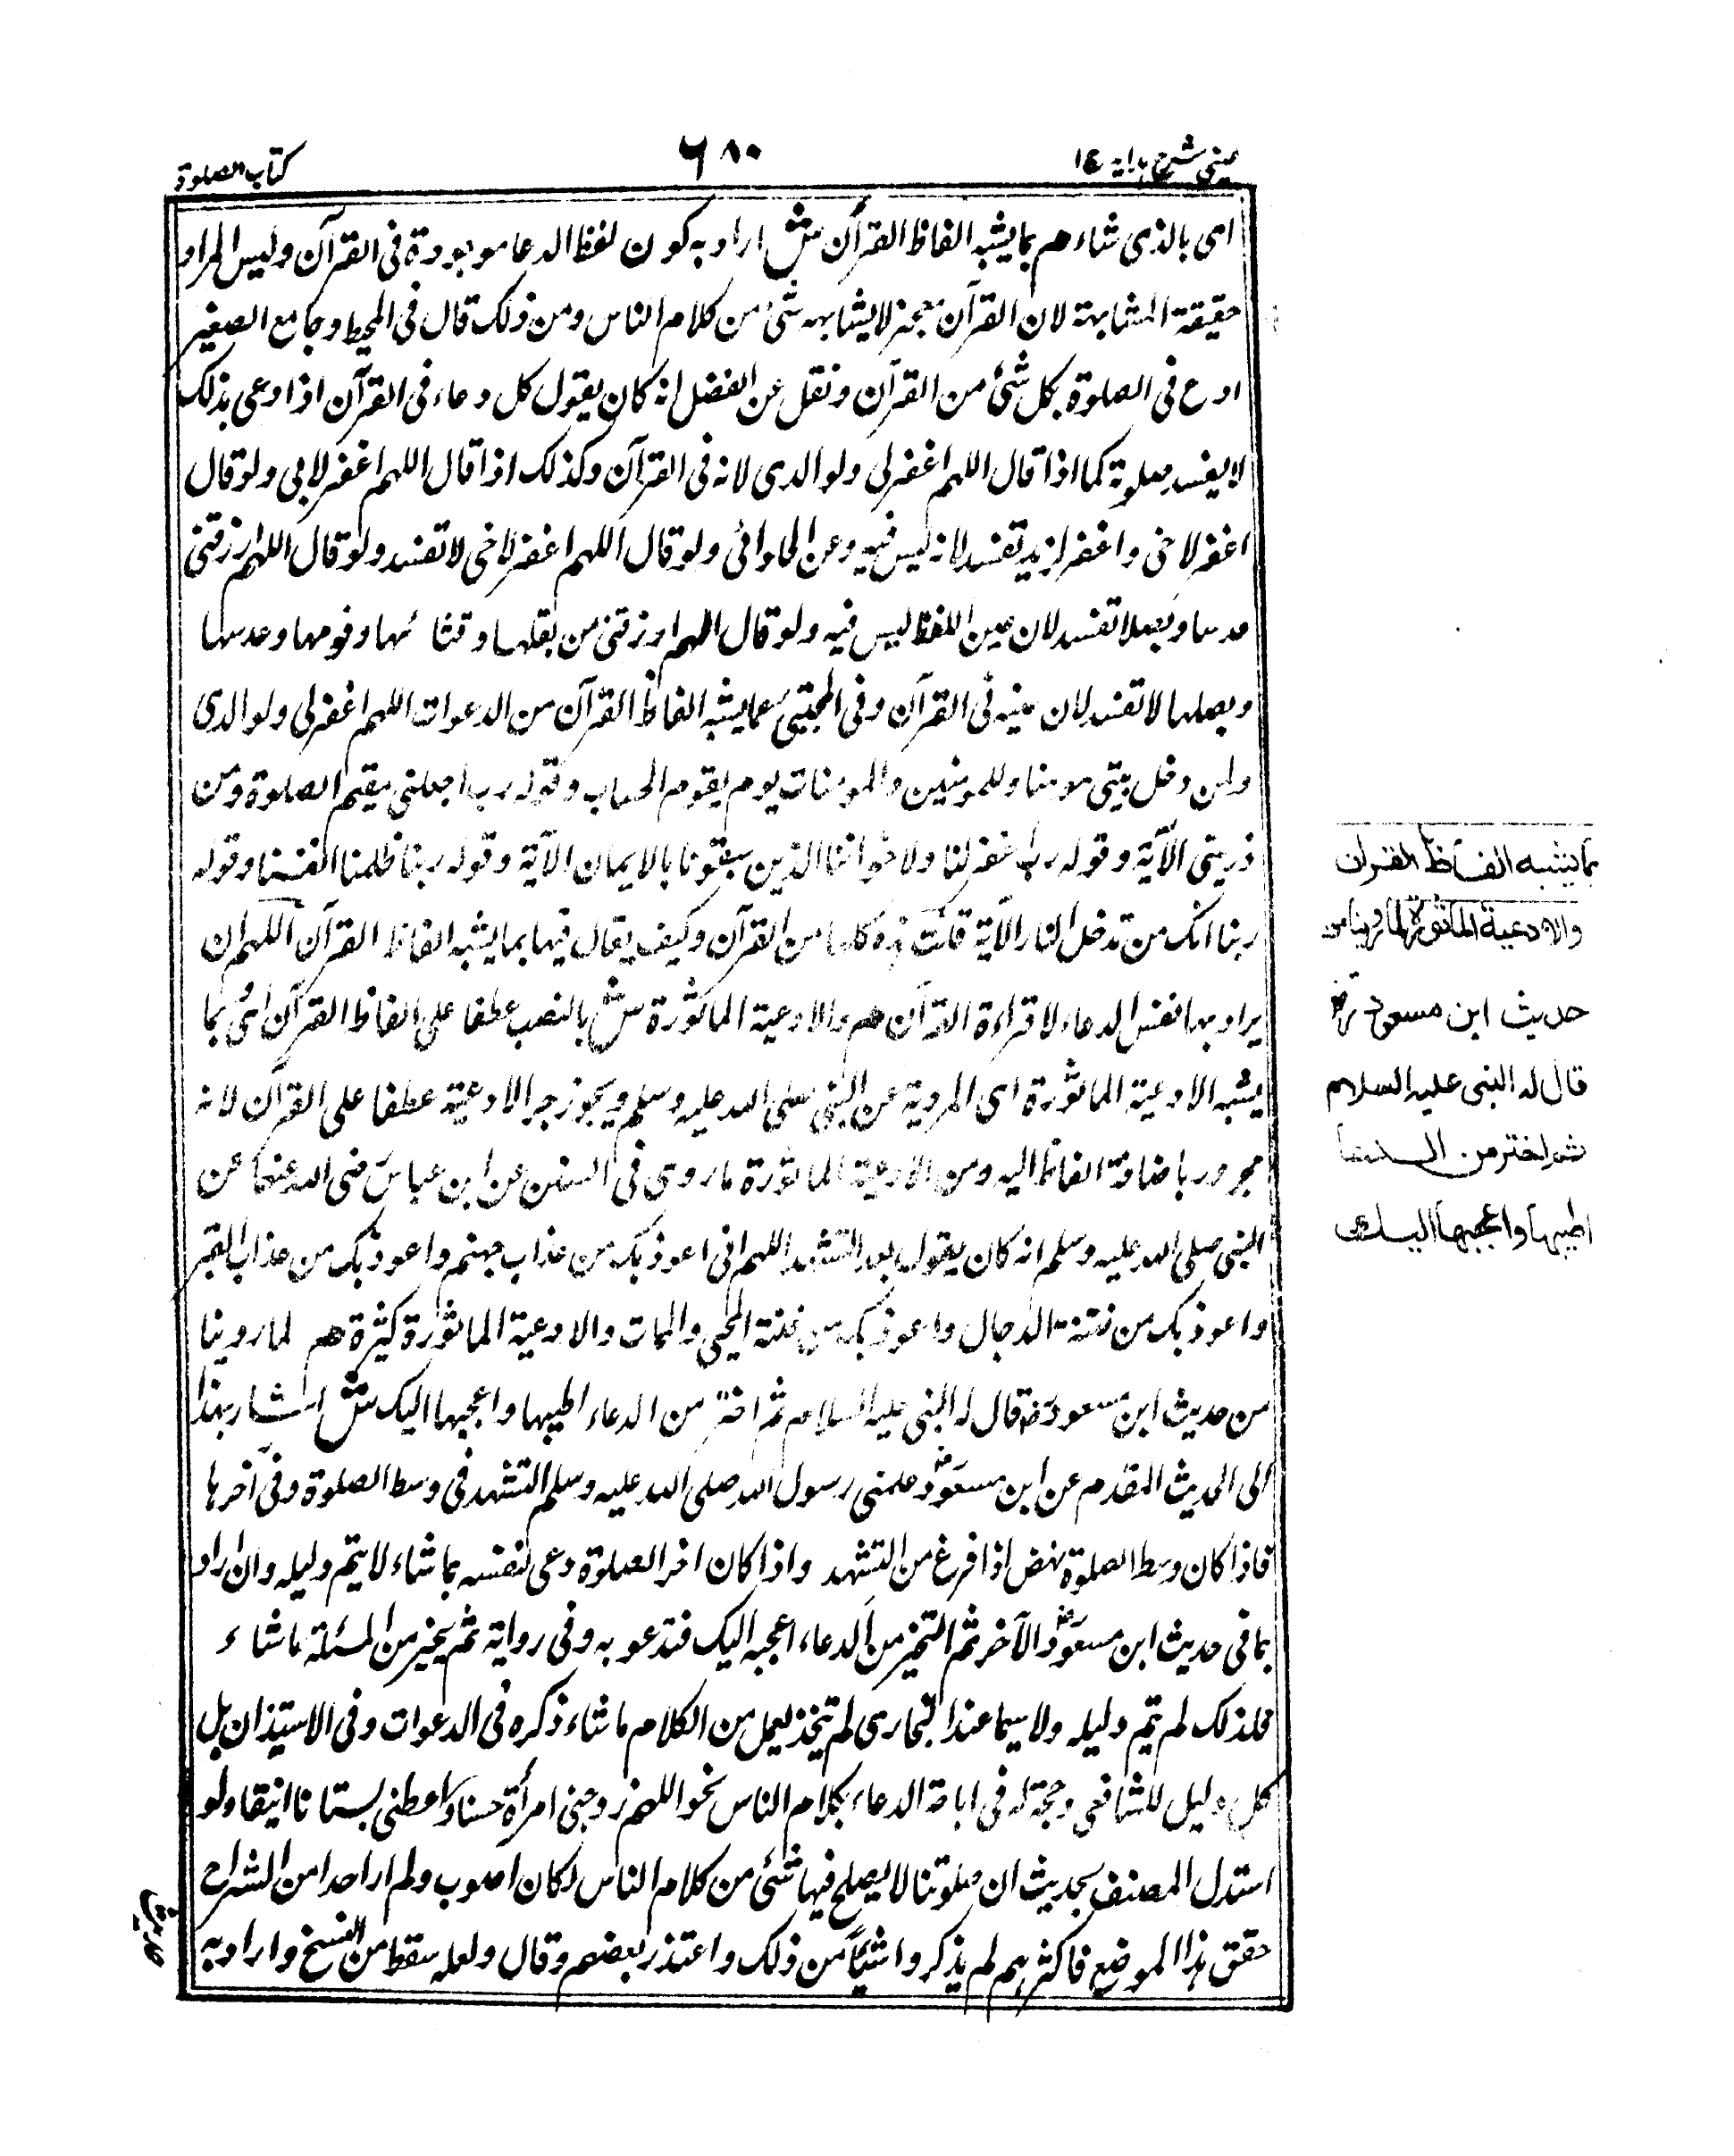 عینی شرح ہدایہ ج۱
۶۸۰
کتاب الصلوة
ای بالذی شاء هم بما یشبه الفاظ القرآن ش اراد به کون لفظ الدعا موجودة فی القرآن ولیس المراد
حقیقة المشابهة لان القرآن معجز لا یشابهه شیٔ من کلام الناس ومن ذلک قال فی المحیط وجامع الصغیر
ادع فی الصلوة بکل شیٔ من القرآن ونقل عن الفضل انه کان یقول کل دعاء فی القرآن اذا دعی بذلک
لا یفسد صلوته کما اذا قال اللهم اغفر لی ولوالدی لانه فی القرآن وکذلک اذا قال اللهم اغفر لابی ولو قال
اغفر لاخی واغفر لزید تفسد لانه لیس فیه وعن الحلوائی ولو قال اللهم اغفر لاخی لا تفسد ولو قال اللهم ارزقنی
عدسا وبصلا تفسد لان عین اللفظ لیس فیه ولو قال اللهم ارزقنی من بقلها وقثائها وفومها وعدسها
وبصلها لا تفسد لان عینه فی القرآن وفی المجتبی مما یشبه الفاظ القرآن من الدعوات اللهم اغفر لی ولوالدی
ولمن دخل بیتی مومنا وللمومنین والمومنات یوم یقوم الحساب وقوله رب اجعلنی مقیم الصلوة ومن
ذریتی الآیة وقوله رب اغفر لنا ولاخواننا الذین سبقونا بالایمان الآیة وقوله ربنا ظلمنا انفسنا وقوله
ربنا انک من تدخل النار الآیة قلت هذه کلها من القرآن وکیف یقال فیها بما یشبه الفاظ القرآن اللهم ان
یراد بها نفس الدعاء لا قراءة القرآن هم والادعیة الماثورة ش بالنصب عطفا علی الفاظ القرآن ای بما
یشبه الادعیة الماثورة ای المرویة عن النبی صلی الله علیه وسلم ویجوز جر الادعیة عطفا علی القرآن لانه
مجرور باضافة الفاظ الیه ومن الادعیة الماثورة ما روی فی السنن عن ابن عباس رضی الله عنهما عن
النبی صلی الله علیه وسلم انه کان یقول بعد التشهد اللهم انی اعوذ بک من عذاب جهنم واعوذ بک من عذاب القبر
واعوذ بک من فتنة الدجال واعوذ بک من فتنة المحیی والممات والادعیة الماثورة کثیرة هم لما روینا
من حدیث ابن مسعود رض قال له النبی علیه السلام ثم اختر من الدعاء اطیبها واعجبها الیک ش اشار بهذا
الی الحدیث المقدم عن ابن مسعود رض علمنی رسول الله صلی الله علیه وسلم التشهد فی وسط الصلوة وفی آخرها
فاذا کان وسط الصلوة نهض اذا فرغ من التشهد واذا کان اخر الصلوة دعی لنفسه بما شاء لا یتم دلیله وان اراد
بما فی حدیث ابن مسعود رض الآخر ثم التخیر من الدعاء اعجبه الیک فتدعو به وفی روایة ثم یخیر من المسئلة ما شاء
فلذلک لم یتم دلیله ولا سیما عند البخاری لم یتخذ لیمل من الکلام ما شاء ذکره فی الدعوات وفی الاستیذان بل
کل دلیل للشافعی وحجة له فی اباحة الدعاء بکلام الناس نحو اللهم زوجنی امرأة حسنا واعطنی بستانا انیقا ولو
استدل المصنف بحدیث ان صلوتنا لا یصلح فیها شیٔ من کلام الناس لکان اصوب ولم ار احدا من الشراح
حقق هذا الموضع فاکثرهم لم یذکروا شیئا من ذلک واعتذر بعضهم وقال ولعله سقط من النسخ واراد به
بما یشبه الفاظ القران
والادعیة الماثورة لما روینا من
حدیث ابن مسعود رض
قال له النبی علیه السلام
ثم اختر من الدعا
اطیبها واعجبها الیک